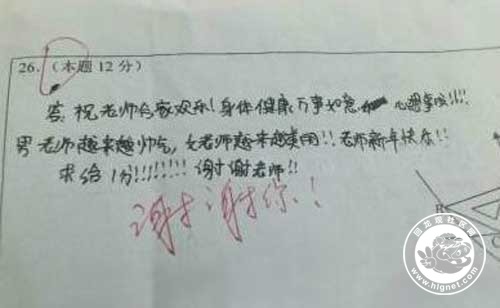 26.（本题 12 分）
答:祝老师合家欢乐!身体健康,万事如意 心想事成!!!!
男老师越来越帅气,女老师越来越美丽!!老师新年快乐!!
求给1分!!!!!!!! 谢谢老师!!
谢谢你!!
B
回龙观社区网
www.hlgnet.com